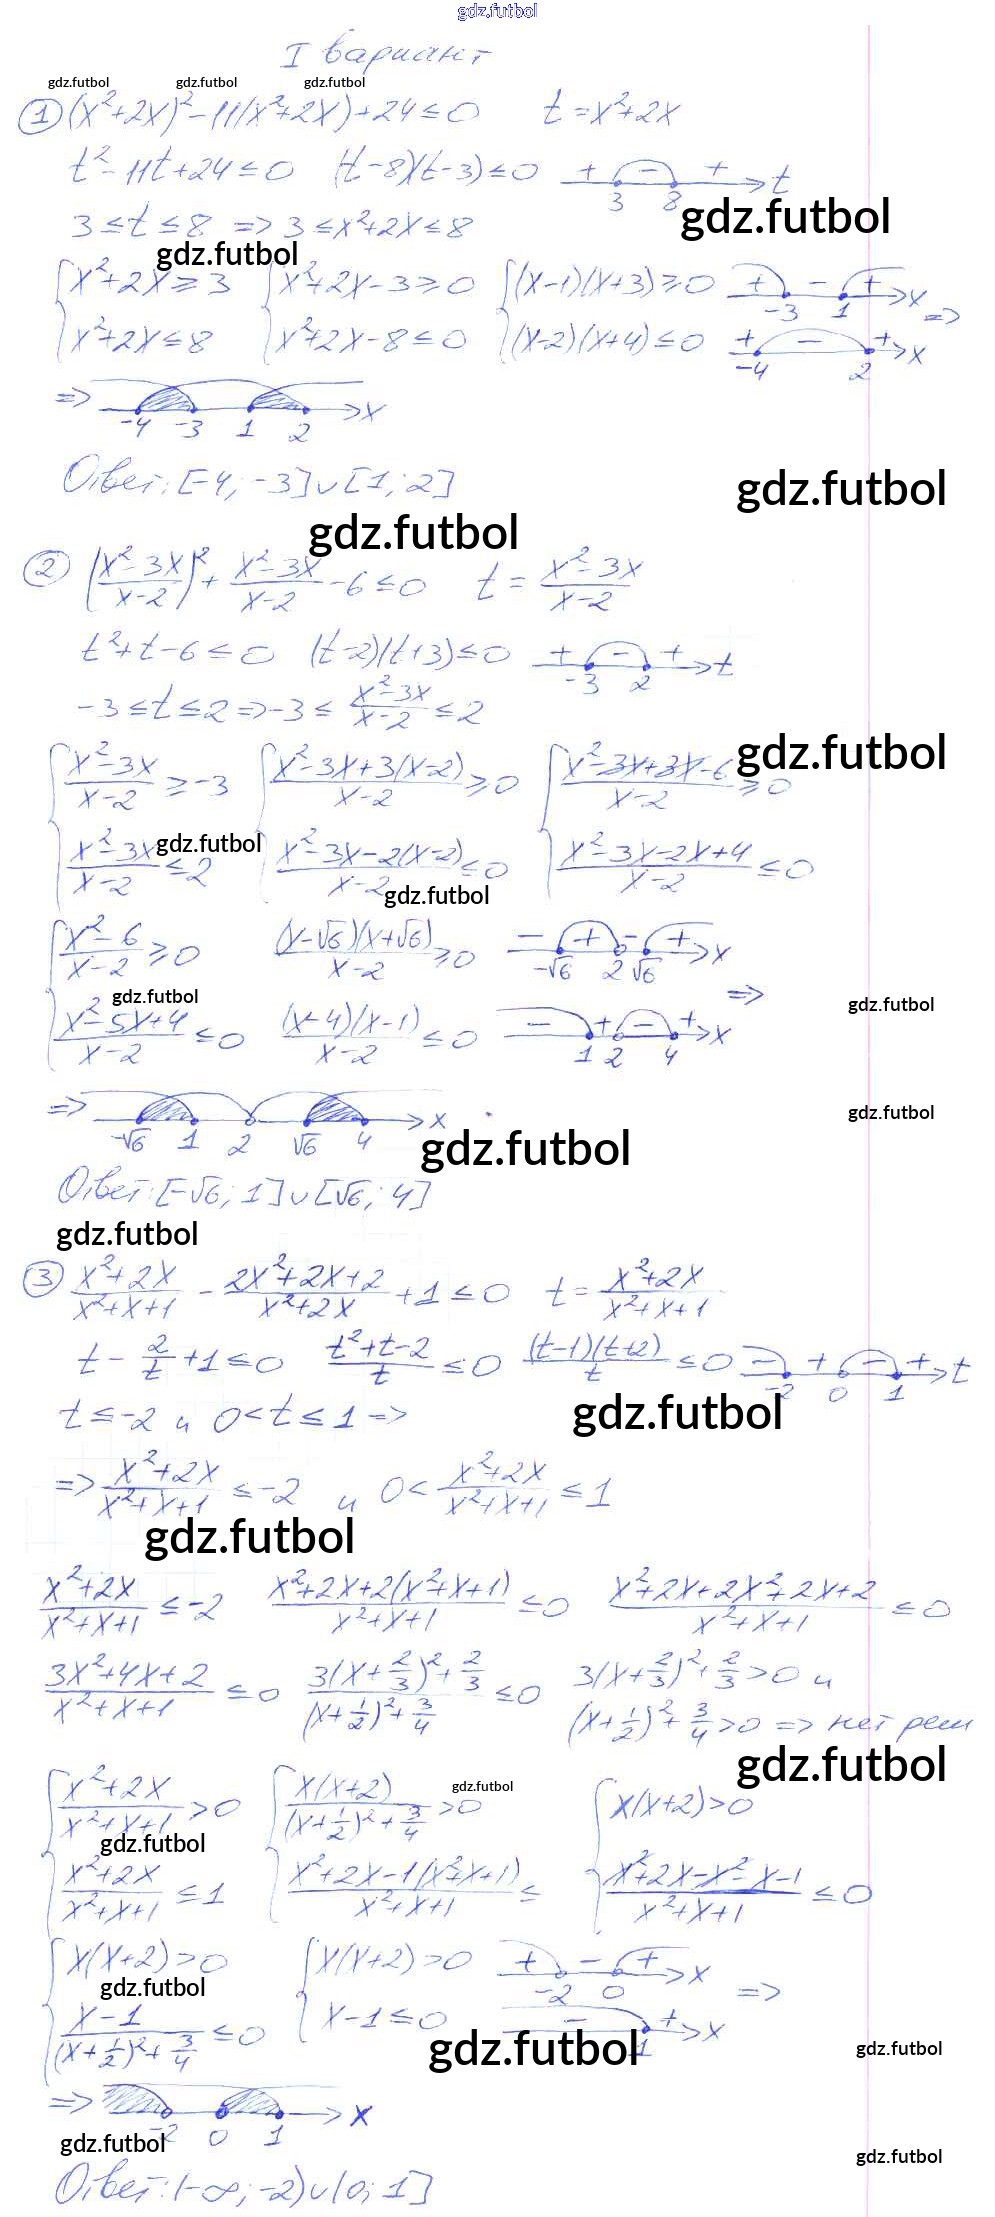 gdz.futbol
I вариант
gdz.futbol gdz.futbol gdz.futbol
① (x²+2x)²-11(x²+2x)+24≤0 t=x²+2x
t²-11t+24≤0 (t-8)(t-3)≤0 + - + t
3 8
3≤t≤8 => 3≤x²+2x≤8 gdz.futbol
gdz.futbol
{x²+2x≥3 {x²+2x-3≥0 {(x-1)(x+3)≥0 + - + x
-3 1 =>
{x²+2x≤8 {x²+2x-8≤0 {(x-2)(x+4)≤0 + - + x
-4 2
=> x
-4 -3 1 2
Ответ: [-4; -3]∪[1; 2] gdz.futbol
gdz.futbol
② ((x²-3x)/(x-2))² + (x²-3x)/(x-2) - 6≤0 t = (x²-3x)/(x-2)
t²+t-6≤0 (t-2)(t+3)≤0 + - + t
-3 2
-3≤t≤2 => -3≤ (x²-3x)/(x-2) ≤2
gdz.futbol
{(x²-3x)/(x-2) ≥-3 {(x²-3x+3(x-2))/(x-2) ≥0 {(x²-3x+3x-6)/(x-2) ≥0
gdz.futbol
{(x²-3x)/(x-2) ≤2 {(x²-3x-2(x-2))/(x-2) ≤0 {(x²-3x-2x+4)/(x-2) ≤0
gdz.futbol
{(x²-6)/(x-2) ≥0 ((x-√6)(x+√6))/(x-2) ≥0 - + - + x
-√6 2 √6
gdz.futbol => gdz.futbol
{(x²-5x+4)/(x-2) ≤0 ((x-4)(x-1))/(x-2) ≤0 - + - + x
1 2 4
=> x gdz.futbol
-√6 1 2 √6 4 gdz.futbol
Ответ: [-√6; 1]∪[√6; 4]
gdz.futbol
③ (x²+2x)/(x²+x+1) - (2x²+2x+2)/(x²+2x) +1≤0 t= (x²+2x)/(x²+x+1)
t - 2/t +1≤0 (t²+t-2)/t ≤0 ((t-1)(t+2))/t ≤0 - + - + t
-2 0 1
t≤-2 и 0<t≤1 => gdz.futbol
=> (x²+2x)/(x²+x+1) ≤-2 и 0< (x²+2x)/(x²+x+1) ≤1
gdz.futbol
(x²+2x)/(x²+x+1) ≤-2 (x²+2x+2(x²+x+1))/(x²+x+1) ≤0 (x²+2x+2x²+2x+2)/(x²+x+1) ≤0
(3x²+4x+2)/(x²+x+1) ≤0 (3(x+2/3)²+2/3)/((x+1/2)²+3/4) ≤0 3(x+2/3)²+2/3>0 и
(x+1/2)²+3/4>0 => нет реш
gdz.futbol
{(x²+2x)/(x²+x+1) >0 {(x(x+2))/((x+1/2)²+3/4) >0 gdz.futbol {x(x+2)>0
gdz.futbol
{(x²+2x)/(x²+x+1) ≤1 {(x²+2x-1(x²+x+1))/(x²+x+1) ≤ {(x²+2x-x²-x-1)/(x²+x+1) ≤0
{x(x+2)>0 {x(x+2)>0 + - + x
gdz.futbol -2 0 =>
{(x-1)/((x+1/2)²+3/4) ≤0 {x-1≤0 - + x
gdz.futbol 1 gdz.futbol
=> x
-2 0 1
gdz.futbol gdz.futbol
Ответ: (-∞; -2)∪(0; 1]